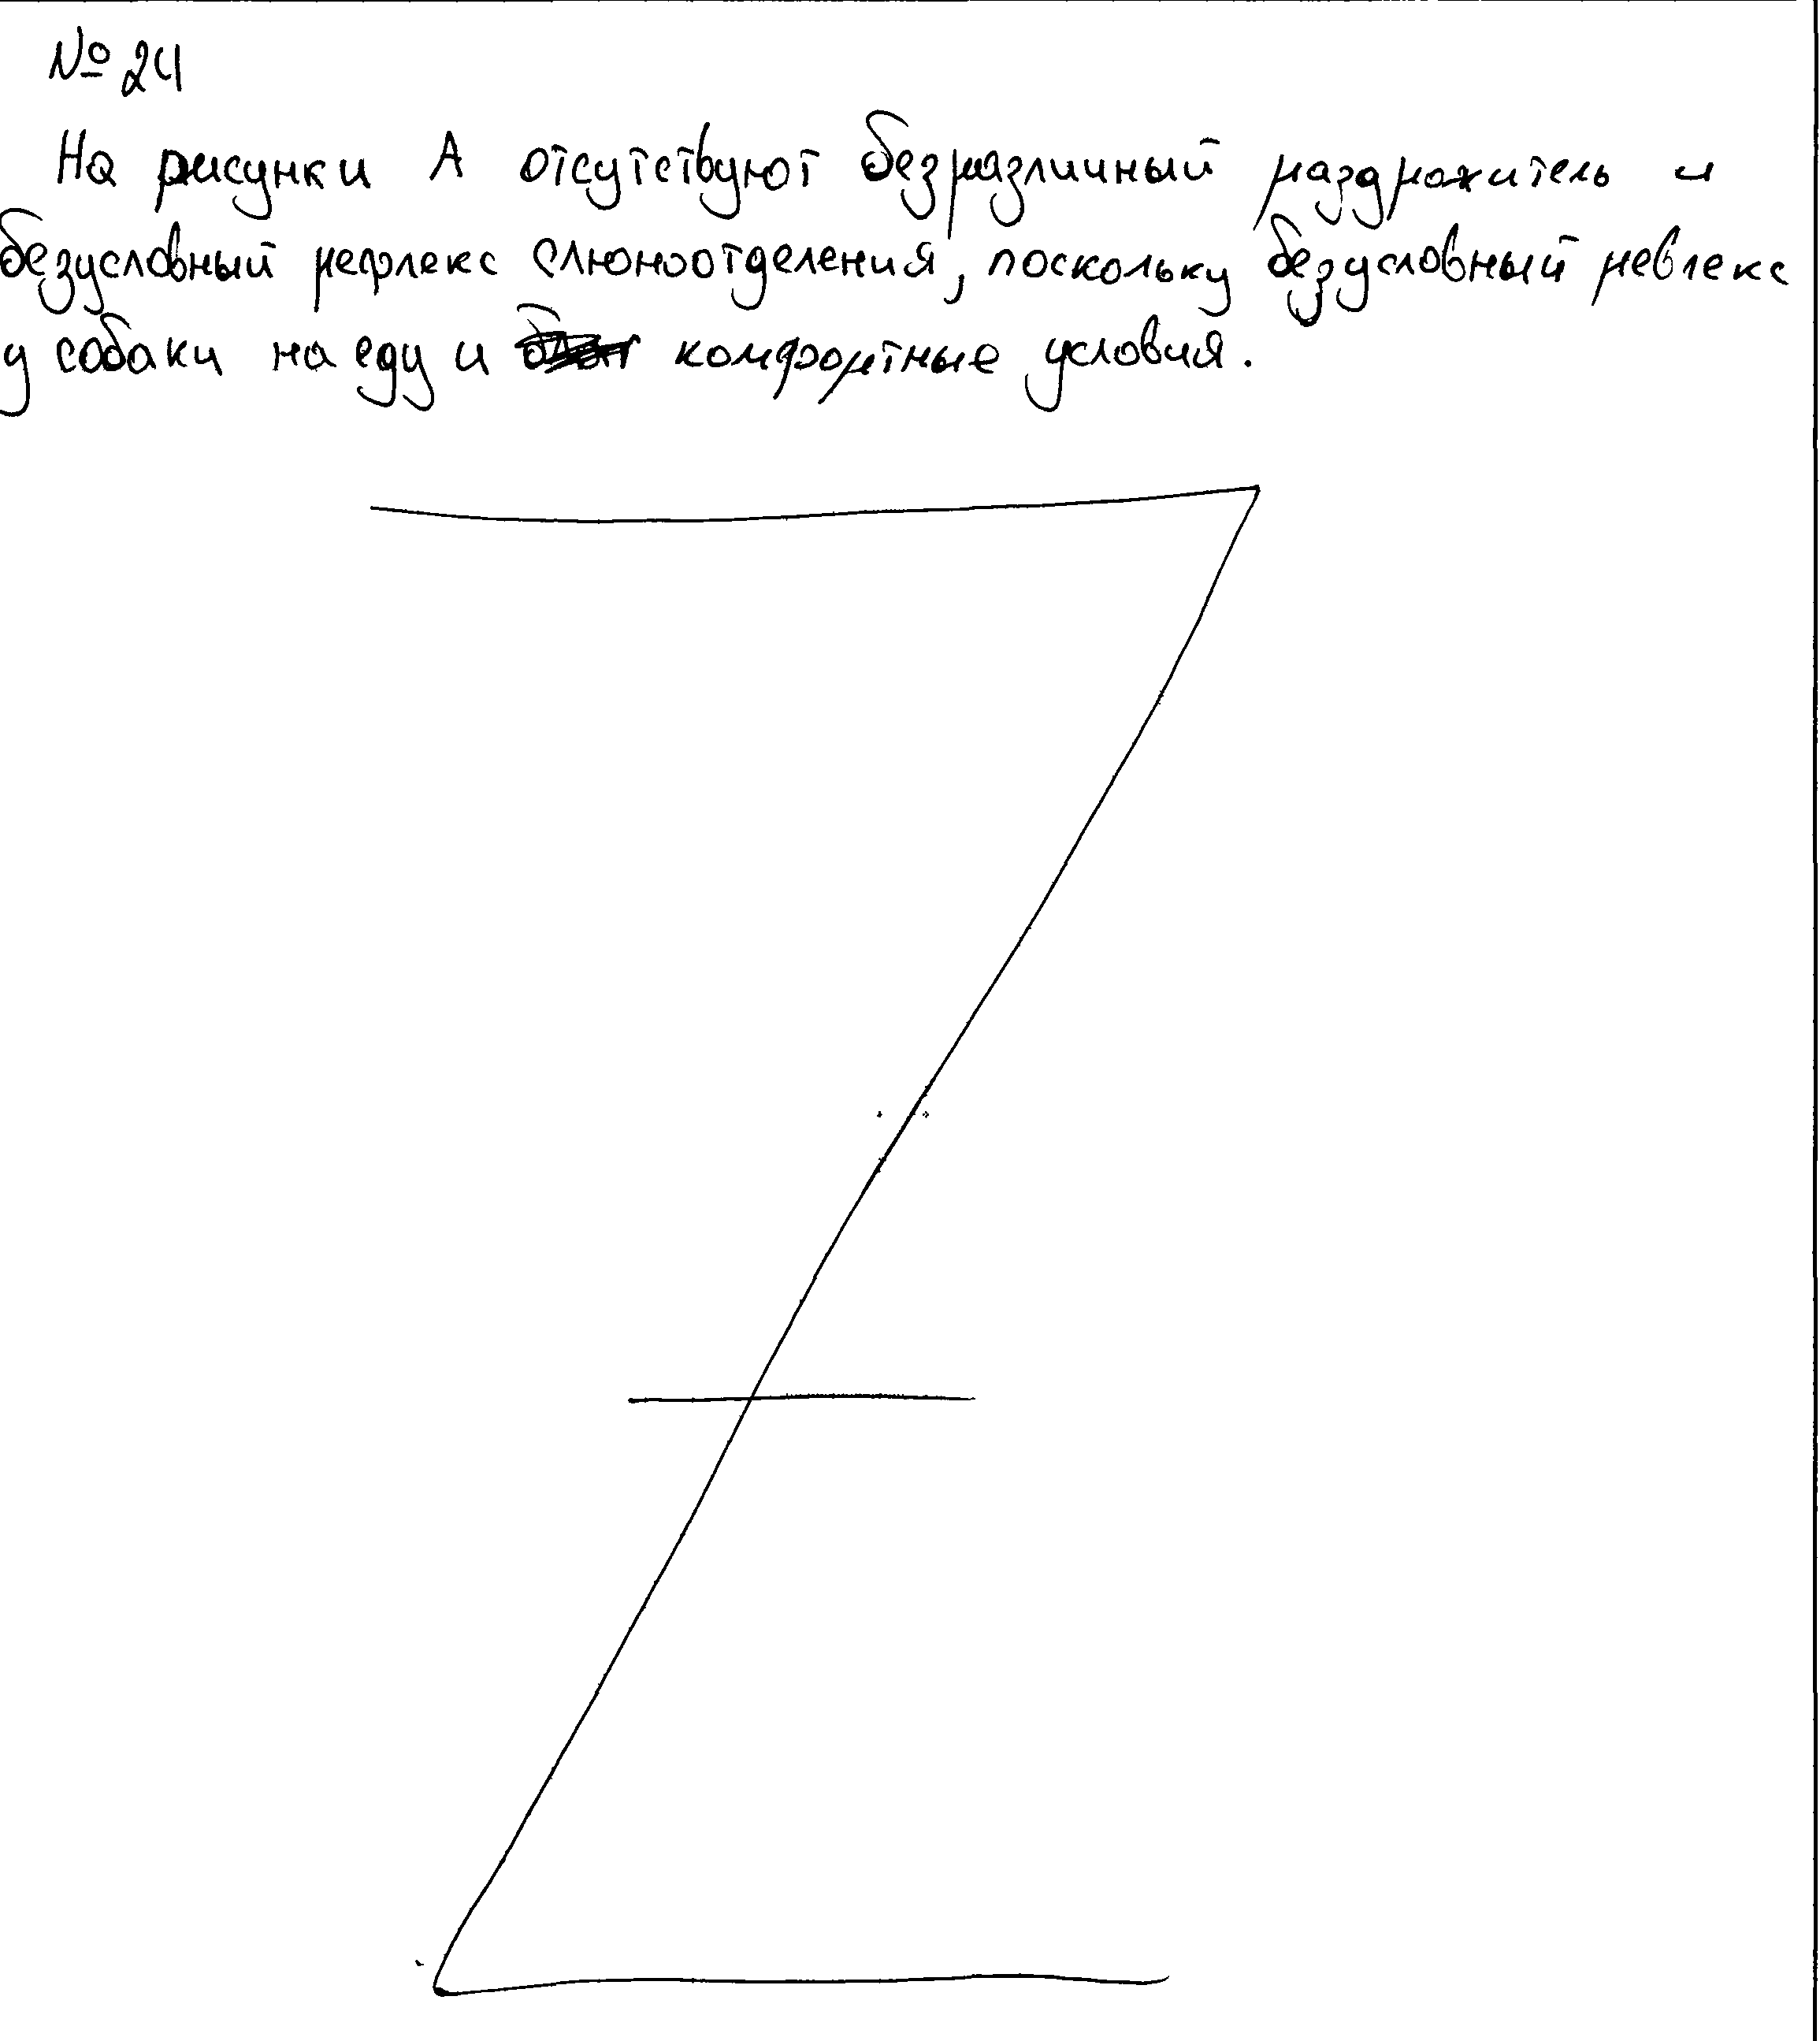 № 24
На рисунки А отсутствуют безразличный раздрожитель и
безусловный рефлекс слюноотделения, поскольку безусловныйревлекс
у собаки на еду и комфортные условия.